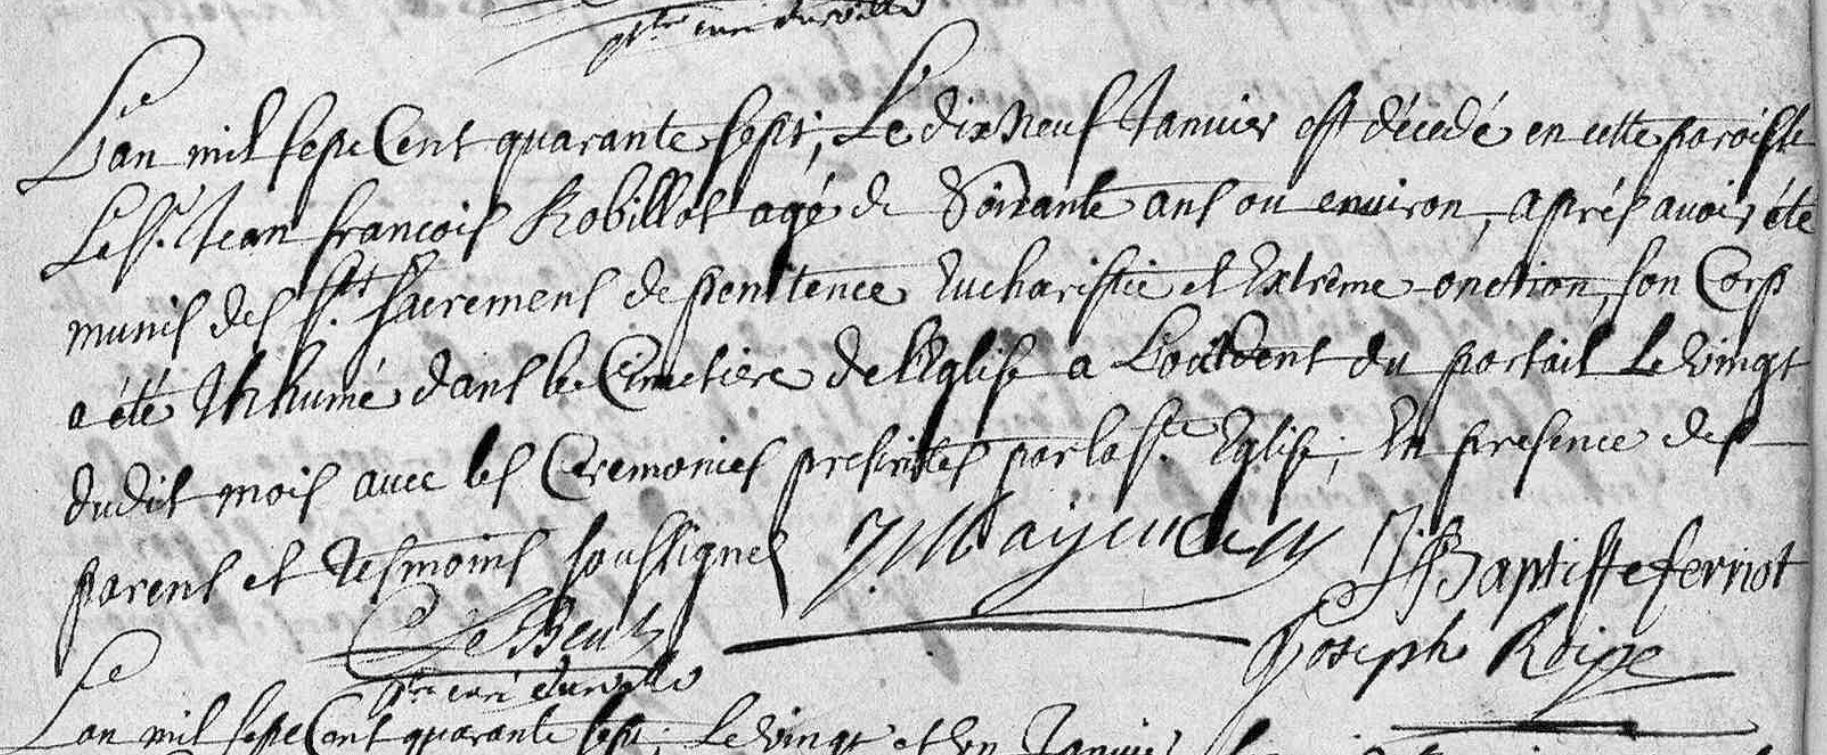 ptre curé durvalle
L'an mil sept Cent quarante sept, Le dix neuf Janvier est décedé en cette paroisse
Le Sr. Jean francois Robillot agé de Soixante ans ou environ, aprés avoir été
munis des Sts. sacremens de penitence Eucharistie et Extrême onction, son Corps
a été Inhumé dans le Cimetiere de l'Eglise a L'occident du portail Le vingt
dudit mois avec les Ceremonies prescrittes par la Ste. Eglise, En presence des
parens et Tesmoins soussignes
J Bapttiste ferriot
Joseph
ptre curé durvalle
L'an mil sept Cent quarante sept, Le vingt et un Janvier